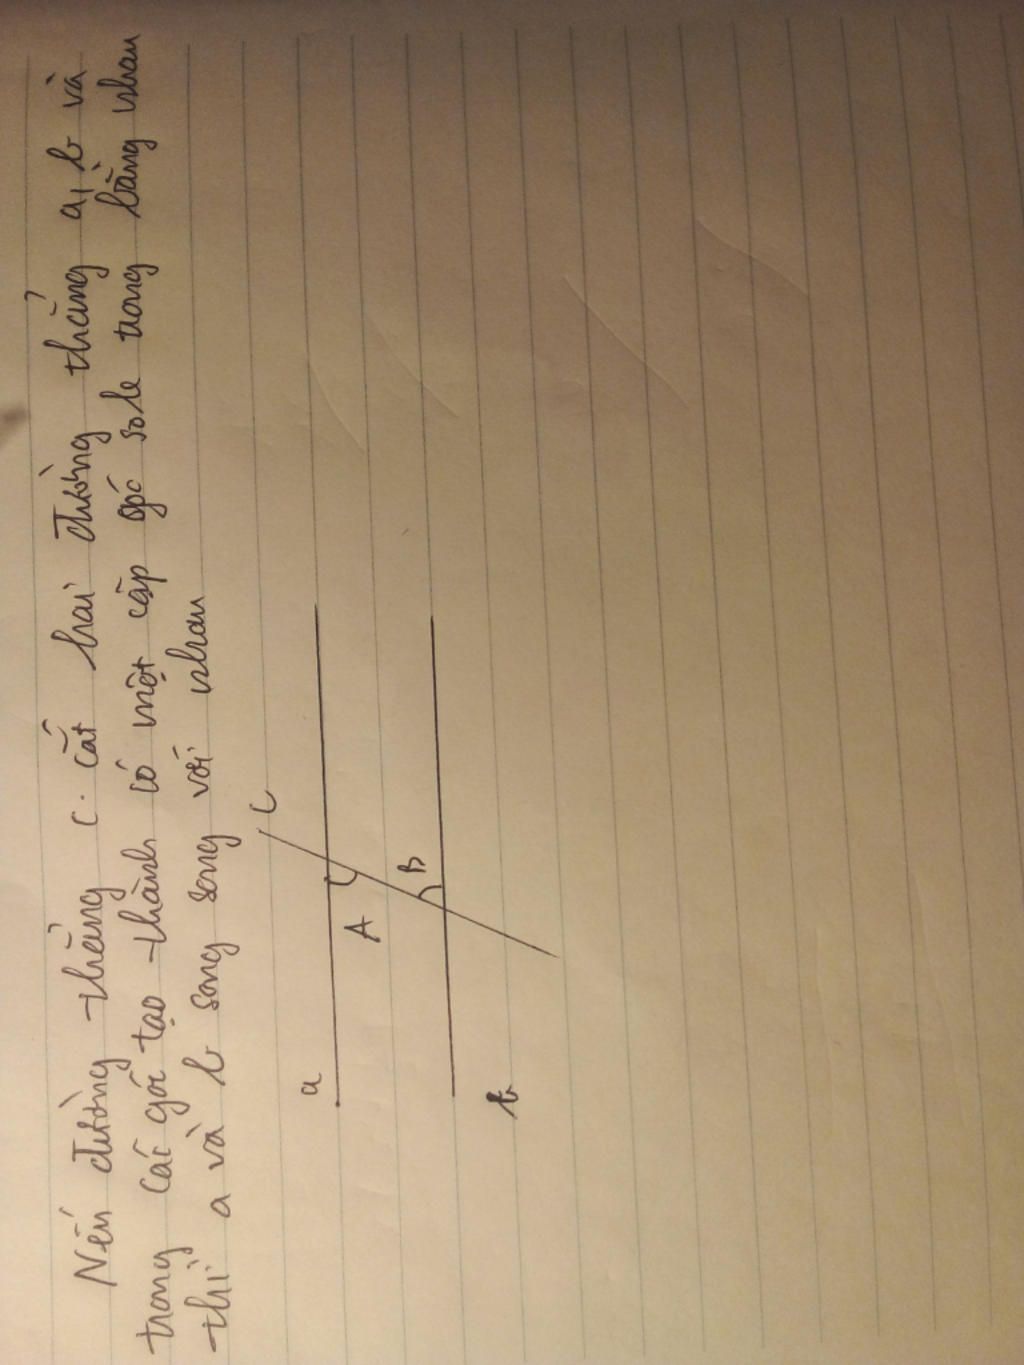 Nếu đường thẳng c. cắt hai đường thẳng a, b và
trong các góc tạo thành có một cặp góc sole trong bằng nhau
thì a và b song song với nhau
c
a
A
B
b